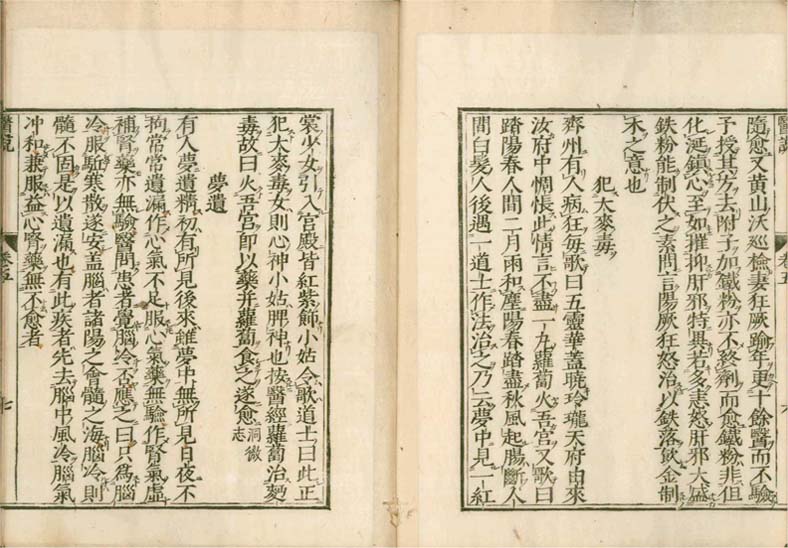 醫說　卷五
隨愈又黃山沃巡檢妻狂厥踰年更十餘醫而不驗
予授其方去附子加鐵粉亦不終劑而愈鐵粉非但
化涎鎮心至如摧抑肝邪特異若多恚怒肝邪大盛
鉄粉能制伏之素問言陽厥狂怒治以鉄落飲金制
木之意也
犯大麥毒
齊州有人病狂每歌曰五靈華蓋曉玲瓏天府由來
汝府中惆悵此情言不盡一丸蘿蔔火吾宮又歌曰
踏陽春人間二月雨和塵陽春踏盡秋風起腸斷人
間白髮人後遇一道士作法治之乃云夢中見一紅
裳少女引入宮殿皆紅紫飾小姑令歌道士曰此正
犯大麥毒女則心神小姑脾神也按醫經蘿蔔治麪
毒故曰火吾宮即以藥并蘿蔔食之遂愈洞微志
夢遺
有人夢遺精初有所見後來雖夢中無所見日夜不
拘常常遺漏作心氣不足服心氣藥無驗作腎氣虛
補腎藥亦無驗醫問患者覺腦冷否應之曰只爲腦
冷服驅寒散遂安蓋腦者諸陽之會髓之海腦冷則
髓不固是以遺漏也有此疾者先去腦中風冷腦氣
冲和兼服益心腎藥無不愈者
醫說　卷五　七